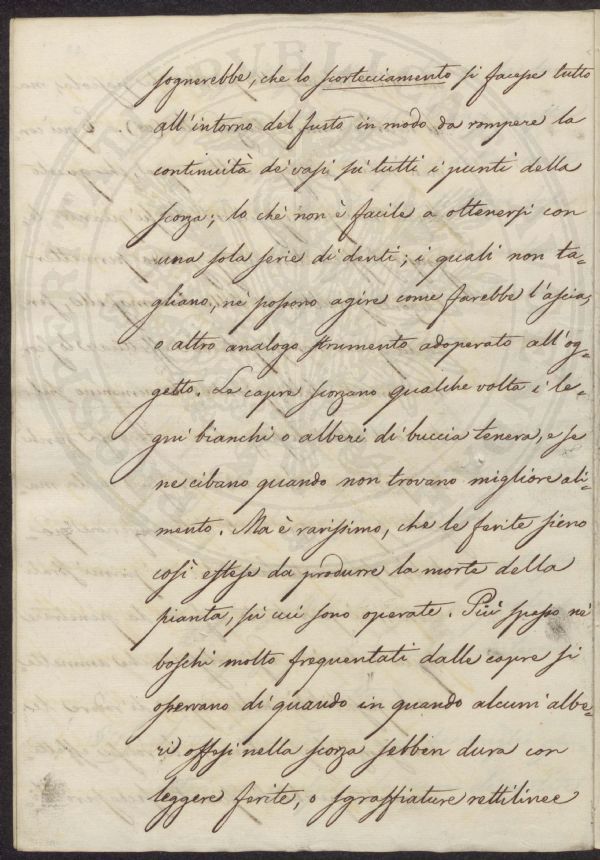 sognerebbe, che lo scortecciamento si facesse tutto
all'intorno del fusto in modo da rompere la
continuità de' vasi su tutti i punti della
scorza; lo che non è facile a ottenersi con
una sola serie di denti; i quali non ta-
gliano, nè possono agire come farebbe l'ascia,
o altro analogo strumento adoperato all'og-
getto. Le capre scorzano qualche volta i le-
gni bianchi o alberi di buccia tenera, e se
ne cibano quando non trovano migliore ali-
mento. Ma è rarissimo, che le ferite sieno
così estese da produrre la morte della
pianta, su cui sono operate. Più spesso ne'
boschi molto frequentati dalle capre si
osservano di quando in quando alcuni albe-
ri offesi nella scorza sebben dura con
leggere ferite, o sgraffiature rettilinee